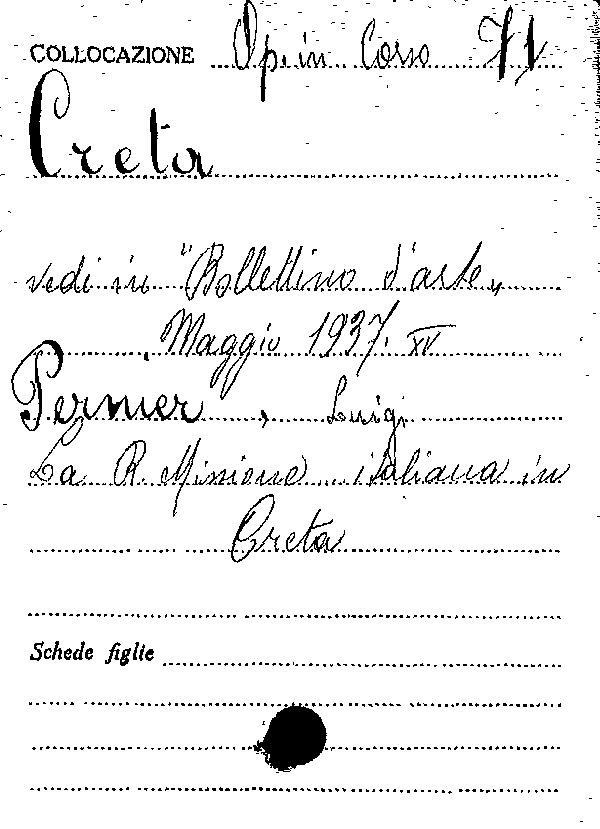 COLLOCAZIONE Op. in Corso 71
Creta
vedi in "Bollettino d'arte„
Maggio 1937. XV
Pernier, Luigi
La R. Missione italiana in
Creta
Schede figlie